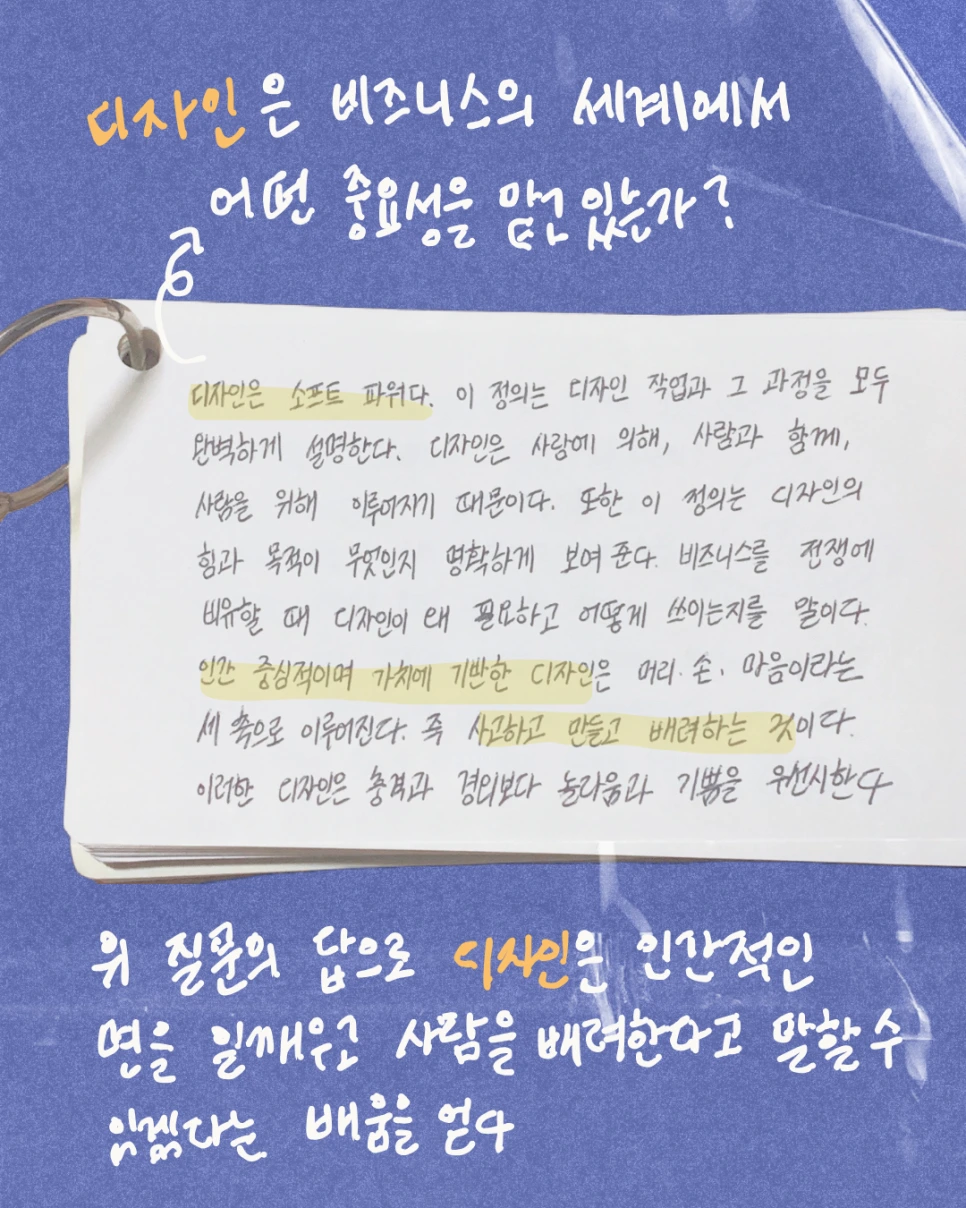 디자인은 비즈니스의 세계에서
어떤 중요성을 맡고 있는가?
디자인은 소프트 파워다. 이 정의는 디자인 작업과 그 과정을 모두
완벽하게 설명한다. 디자인은 사람에 의해, 사람과 함께,
사람을 위해 이루어지기 때문이다. 또한 이 정의는 디자인의
힘과 목적이 무엇인지 명확하게 보여 준다. 비즈니스를 전쟁에
비유할 때 디자인이 왜 필요하고 어떻게 쓰이는지를 말이다.
인간 중심적이며 가치에 기반한 디자인은 머리·손·마음이라는
세 축으로 이루어진다. 즉 사고하고 만들고 배려하는 것이다.
이러한 디자인은 충격과 경외보다 놀라움과 기쁨을 우선시한다
위 질문의 답으로 디자인은 인간적인
면을 일깨우고 사람을 배려한다고 말할 수
있겠다는 배움을 얻다